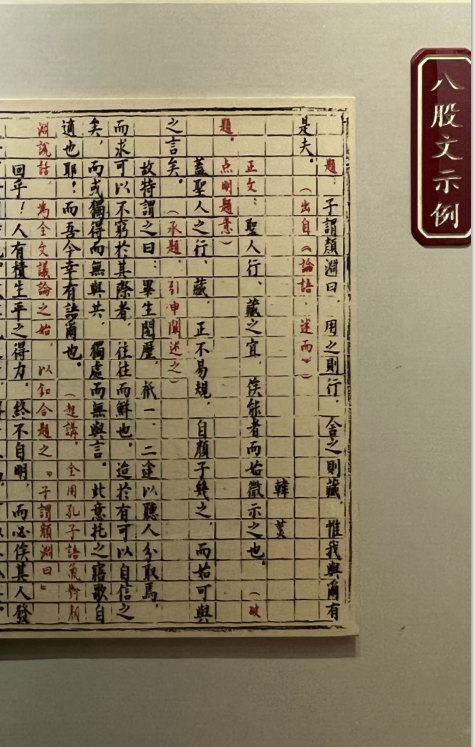 八股文示例
題：子謂顏淵曰，用之則行，舍之則藏，惟我與爾有
是夫。（出自《論語·述而》）
韓菼
正文：聖人行、藏之宜，俟能者而始微示之也。（破
題。点明題意）
蓋聖人之行、藏，正不易規，自顏子幾之，而始可與
之言矣。（承題。引申闡述之）
故特謂之曰：畢生閱歷，祇一、二途以聽人分取焉，
而求可以不窮於其際者，往往而鮮也。迨於有可以自信之
矣，而或獨得而無與共，獨處而無與言。此意托之寤歌自
適也耶！而吾今幸有語爾也。（起講。全用孔子語氣對顏
淵説話，為全文議論之始，以扣合題之『子謂顏淵曰』
回乎！人有積生平之得力，終不自明，而必俟其人發